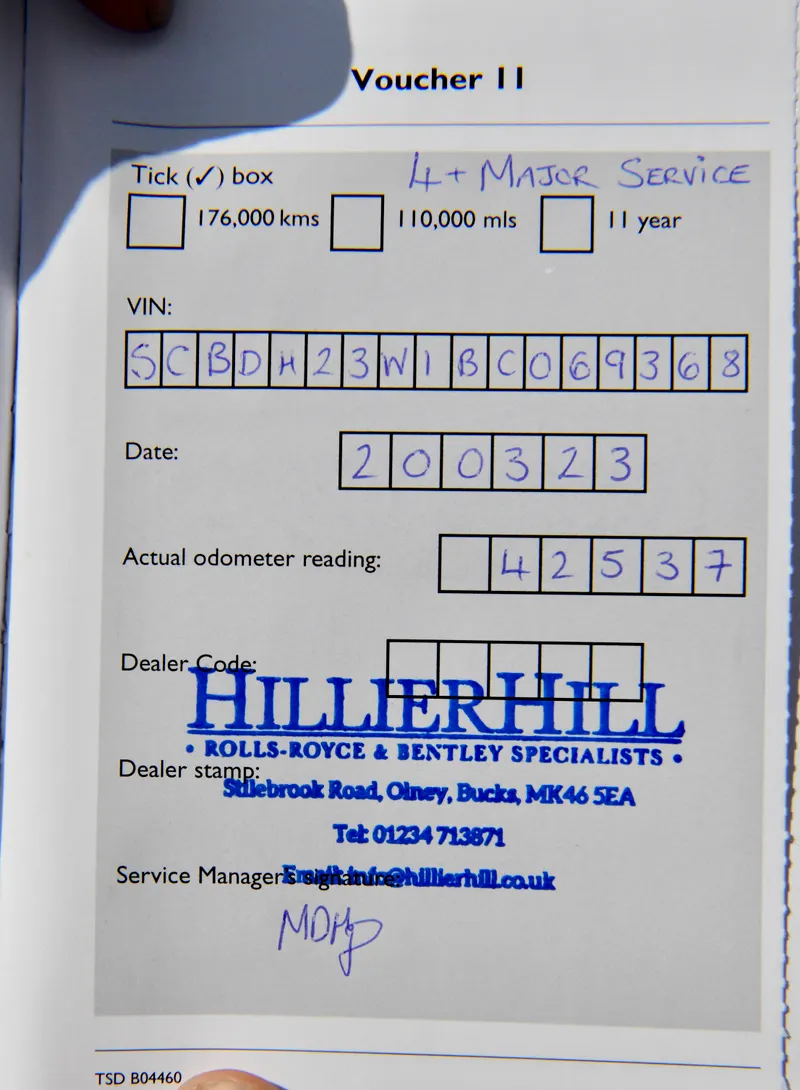 Voucher 11
Tick (✓) box 4+ MAJOR SERVICE
176,000 kms 110,000 mls 11 year
VIN:
SCBDH23W1BC069368
Date: 200323
Actual odometer reading: 42537
Dealer Code:
HILLIERHILL
• ROLLS-ROYCE & BENTLEY SPECIALISTS •
Dealer stamp:
Stilebrook Road, Olney, Bucks, MK46 5EA
Tel: 01234 713871
Service Manager's signature:
Email: info@hillierhill.co.uk
TSD B04460